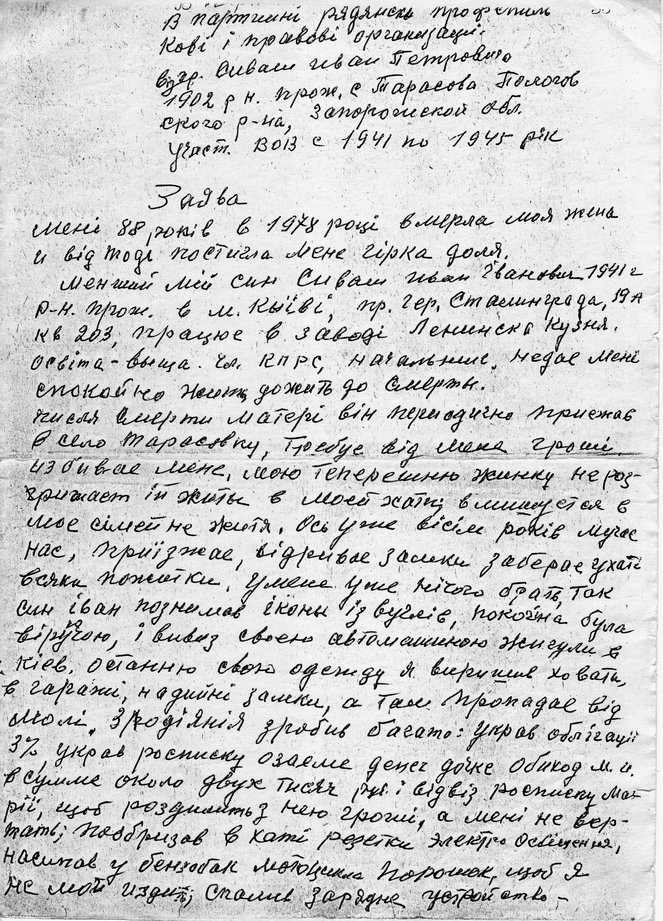 В партийні рядянски профспіль
кові і правові організації.
від гр. Сиваш Иван Петрович
1902 р н. прож. с Тарасова Пологов
ского р-на, Запорожской обл.
Участ. ВОВ с 1941 по 1945 рік
Заява
Мені 88 років в 1978 році вмерла моя жена
и від тоді постигла мене гірка доля.
Менший мій син Сиваш Иван Іванович 1941 г
р-н. прож. в м. Київі, пр. Гер. Сталинграда, 19 А
кв 203, працює в заводі Ленинска Кузня.
Освіта - выща. Чл. КПРС, начальник. недає мені
спокойно жить, дожить до смерты.
После смерти матері він периодично приежав
в село Тарасовку, Требує від мене гроші.
избивае мене, мою теперешню жинку нероз-
гришает ій житы в моей хаті, вмишуется в
мое сімейне житя. Ось уже вісім років мучає
нас, приїзжає, відривае замки заберає
всяки пожитки. Умене уже нічого брать, так
син іван познимав іконы із вуглів, покойна була
віручою, і вивиз своею автомашиною жигули в
Киев. останню свою одежду я вирушив ховать,
в гаражі, надийні замки, а там пропадає від
молі. Злодіянія зробив багато: украв облігації
3%, украв росписку озаеме денег дочке Обиход М. И.
в сумме около двух тисяч руб і відвіз росписку Ма-
рії, щоб роздилить з нею гроши, а мені не вер-
тать; пообризав в хаті розетки электро освіщения,
насипав у бензобак мотоцикла порошек, щоб я
не мог издить; спалив зарядне устройство -